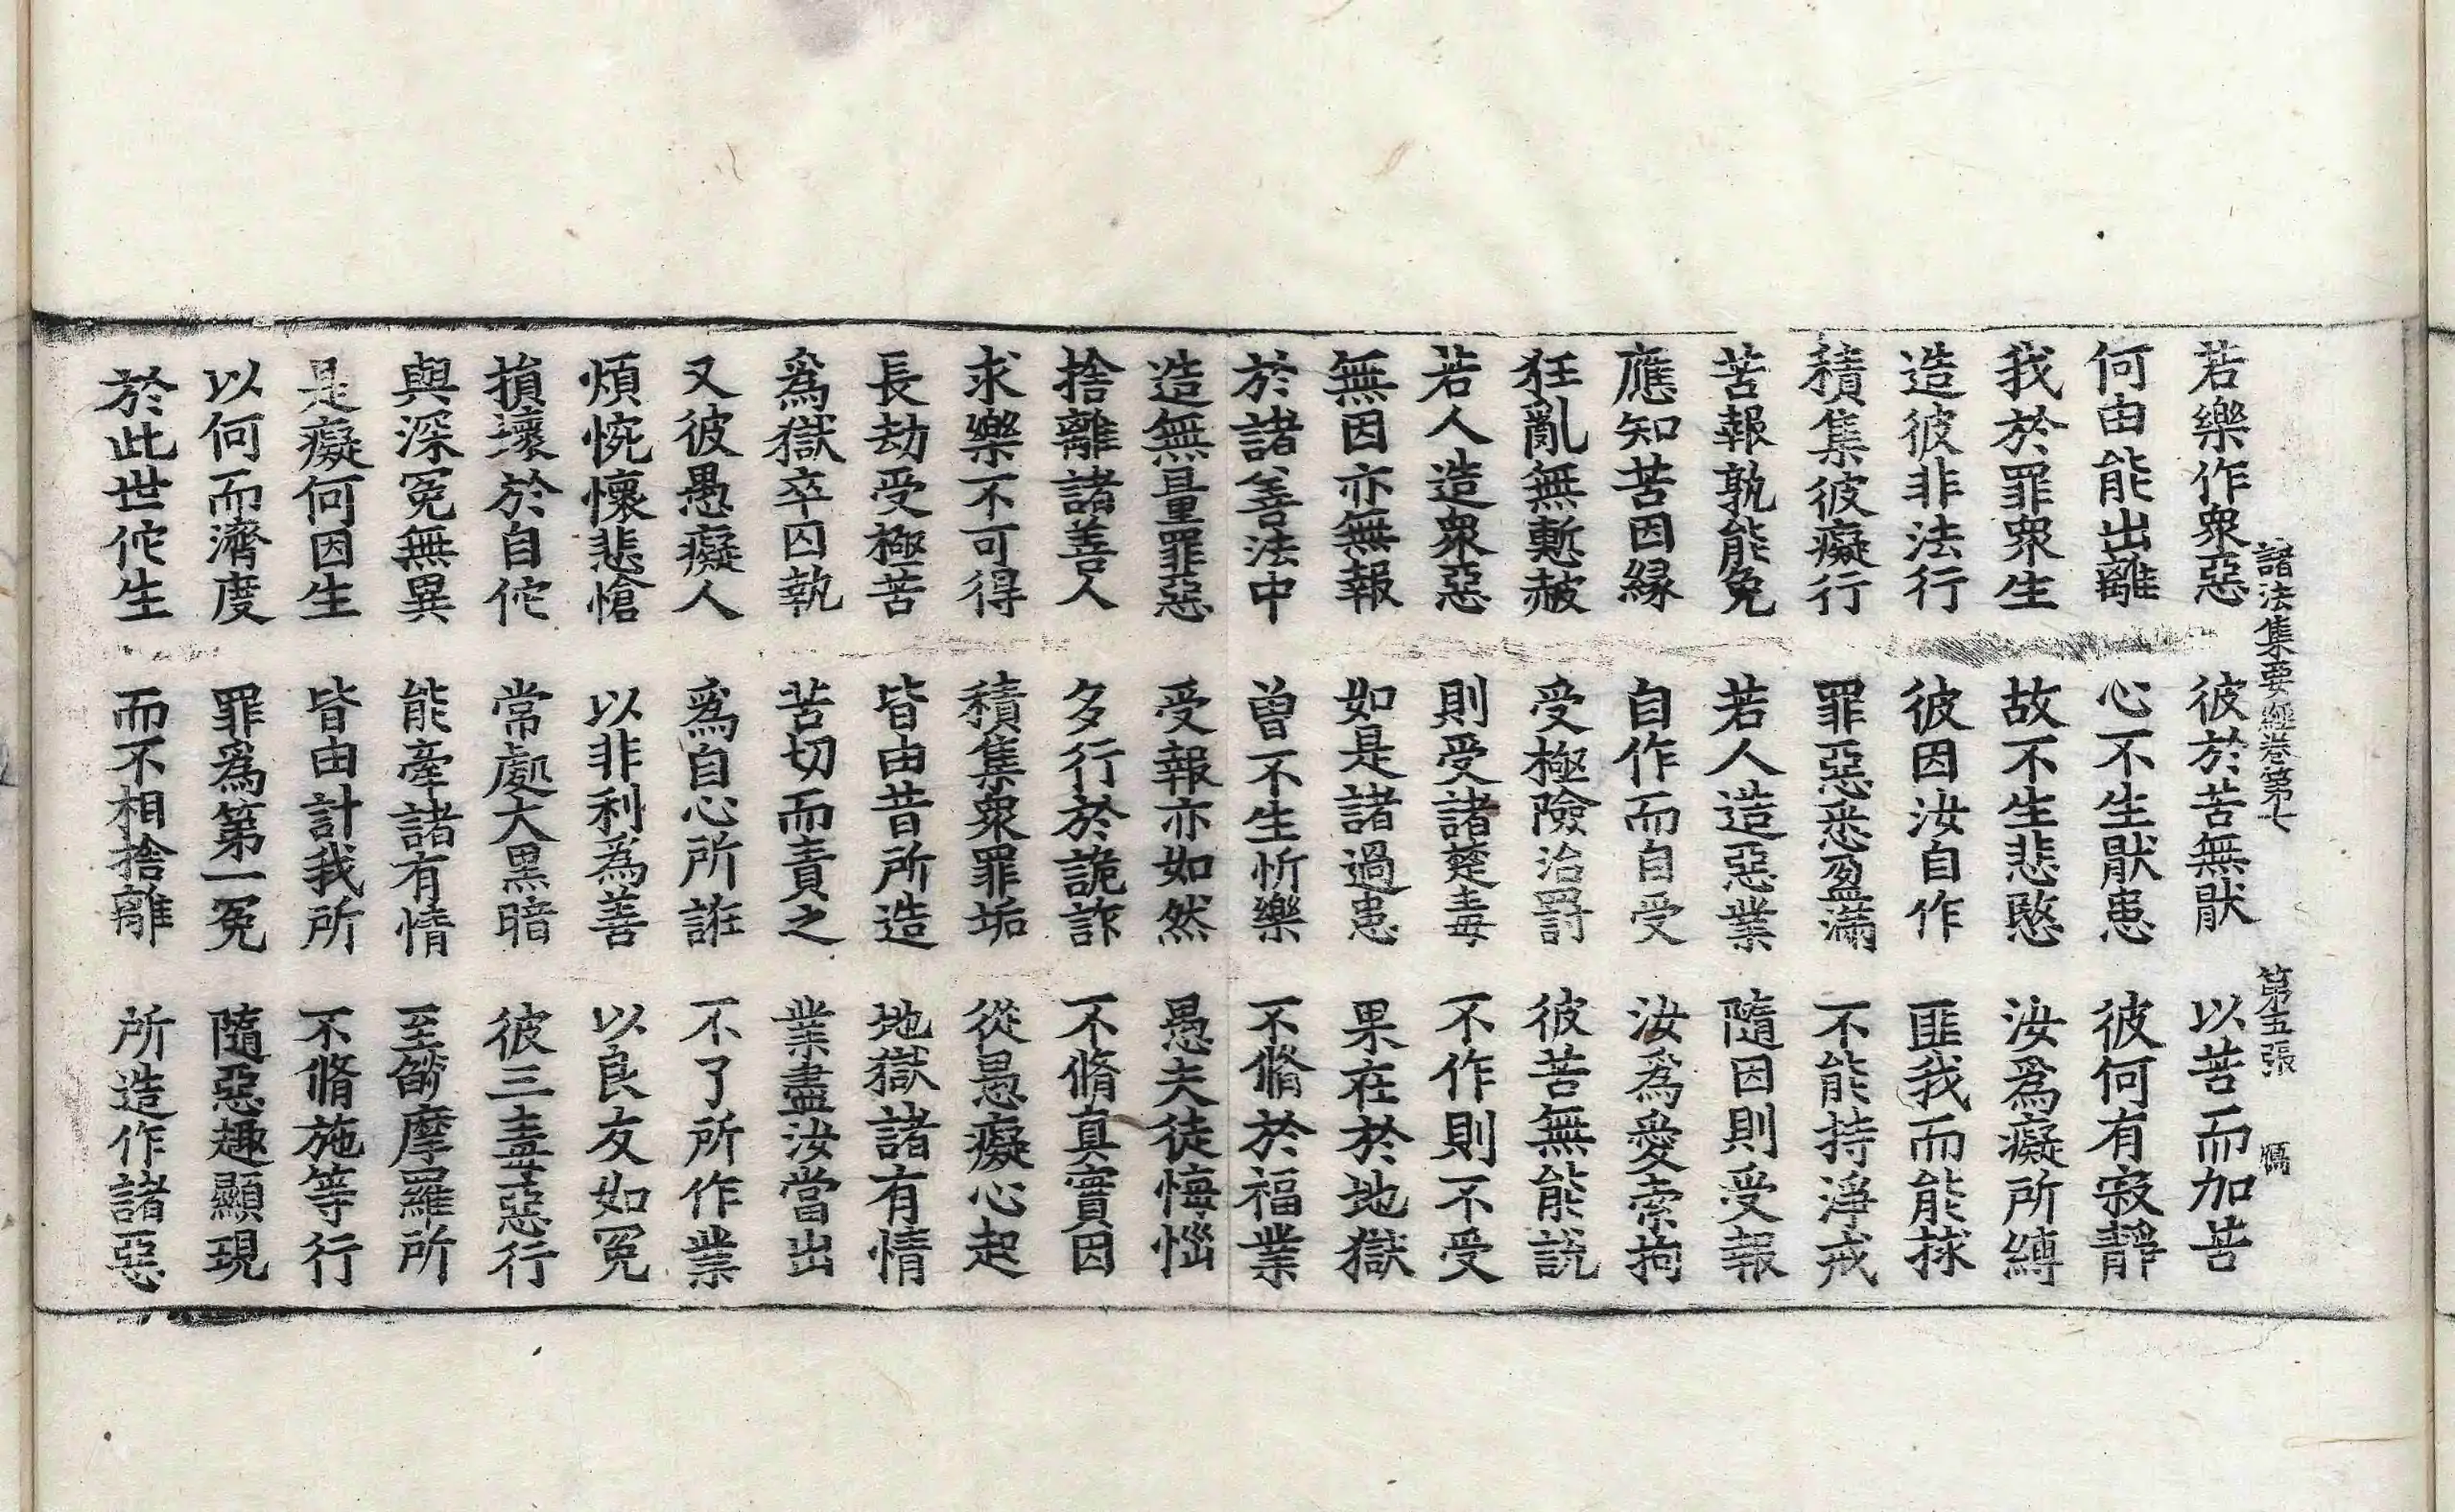 諸法集要經卷第七 第五張 獁
若樂作衆惡 彼於苦無猒 以苦而加苦
何由能出離 心不生猒患 彼何有寂靜
我於罪衆生 故不生悲愍 汝爲癡所縛
造彼非法行 彼因汝自作 匪我而能捄
積集彼癡行 罪惡悉盈滿 不能持淨戒
苦報孰能免 若人造惡業 隨因則受報
應知苦因緣 自作而自受 汝爲愛索拘
狂亂無慙赧 受極險治罸 彼苦無能說
若人造衆惡 則受諸楚毒 不作則不受
無因亦無報 如是諸過患 果在於地獄
於諸善法中 曾不生忻樂 不脩於福業
造無量罪惡 受報亦如然 愚夫徒悔惱
捨離諸善人 多行於詭詐 不脩真實因
求樂不可得 積集衆罪垢 從愚癡心起
長劫受極苦 皆由昔所造 地獄諸有情
爲獄卒囚執 苦切而責之 業盡汝當出
又彼愚癡人 爲自心所誑 不了所作業
煩惋懷悲愴 以非利爲善 以良友如冤
損壞於自佗 常處大黑暗 彼三毒惡行
與深冤無異 能牽諸有情 至㷿摩羅所
是癡何因生 皆由計我所 不脩施等行
以何而濟度 罪爲第一冤 隨惡趣顯現
於此世佗生 而不相捨離 所造作諸惡